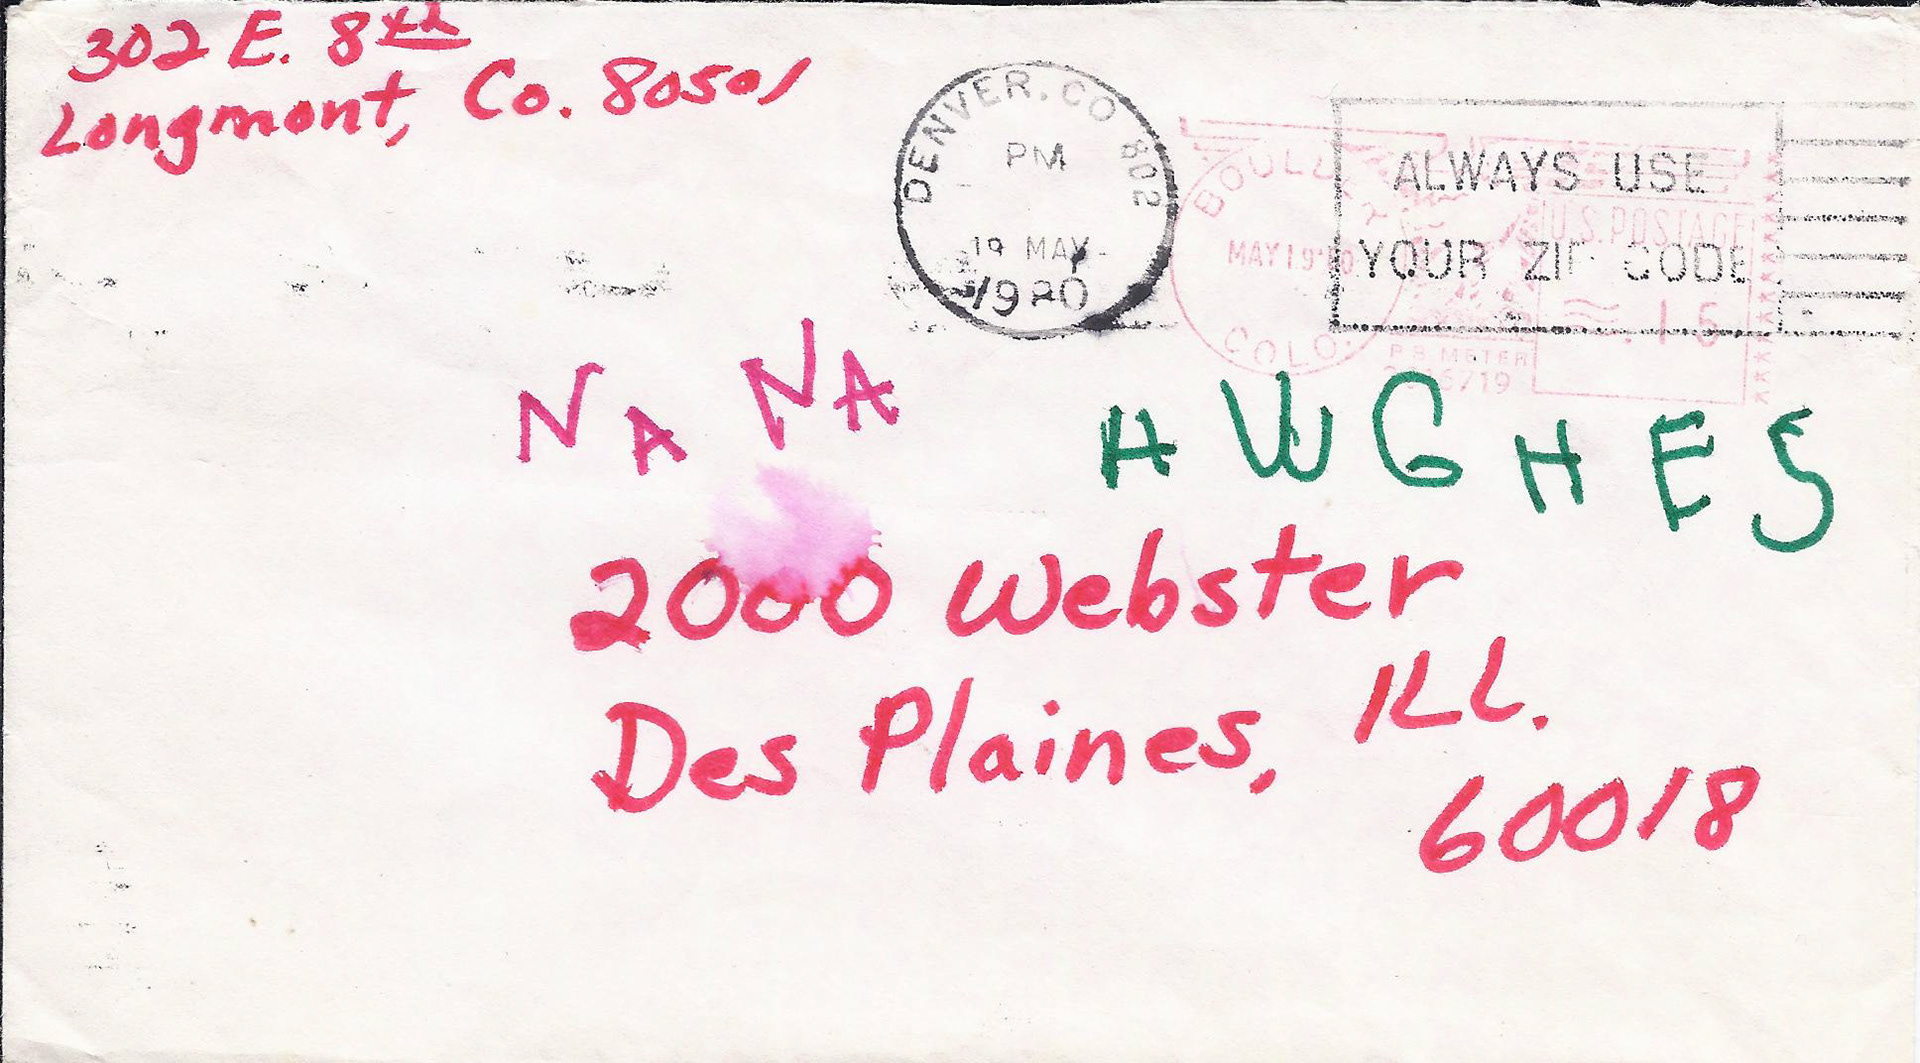 302 E. 8th
Longmont, Co. 80501
DENVER, CO 802
PM
19 MAY
1980
ALWAYS USE
YOUR ZIP CODE
MAY 19'80
COLO.
U.S. POSTAGE
.15
P.B. METER
NANA HUGHES
2000 Webster
Des Plaines, ILL.
60018